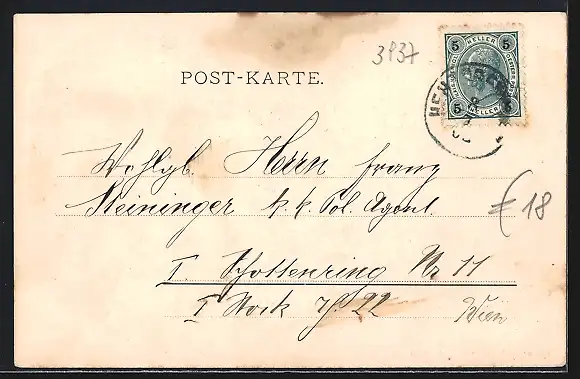 3937
5 HELLER 5
5 HELLER 5
POST-KARTE.
Wohlgb. Herrn Franz
Steininger k. k. Pol. Agent.
€ 18
I. Schottenring Nr 11
I Stock 22 Wien